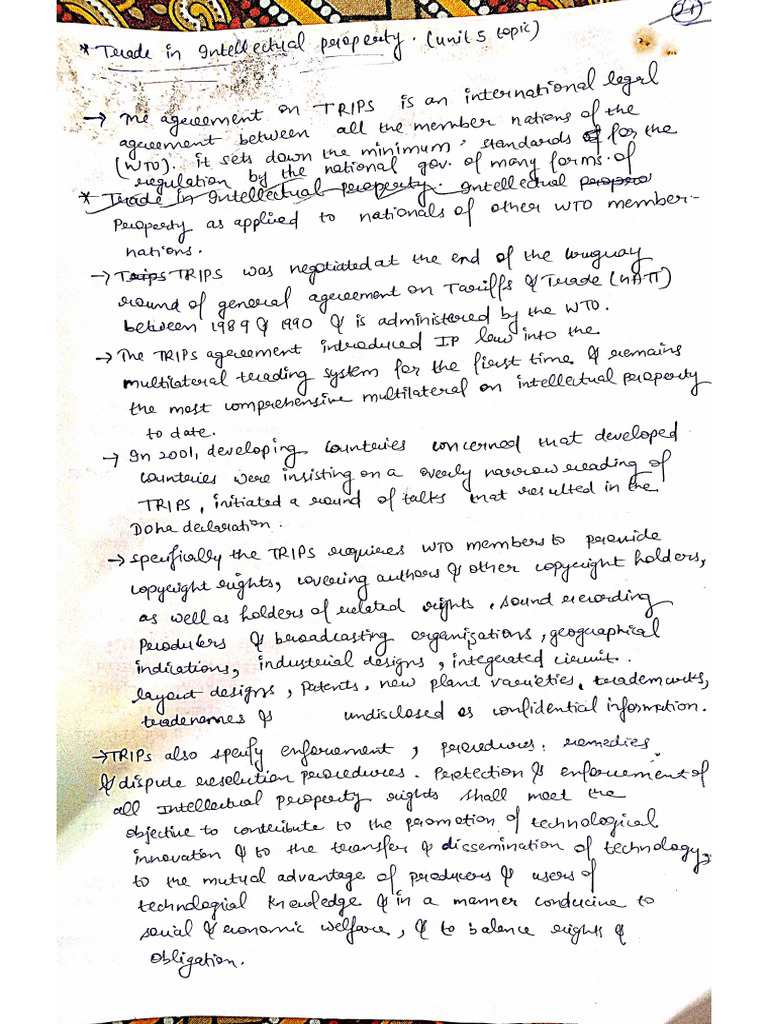 21
* Trade in Intellectual property. (unit 5 topic)
→ The agreement on TRIPS is an international legal
agreement between all the member nations of the
(WTO). it sets down the minimum standards of for the
regulation by the national gov. of many forms of
* Trade in Intellectual property. Intellectual propero
Property as applied to nationals of other WTO member-
nations.
→ Trips TRIPS was negotiated at the end of the uruguay
round of general agreement on Tariffs & Trade (GATT)
between 1989 & 1990 & is administered by the WTO.
→ The TRIPS agreement introduced IP law into the
multilateral trading system for the first time & remains
the most comprehensive multilateral on intellectual property
to date.
→ In 2001, developing countries concerned that developed
countries were insisting on a overly narrow reading of
TRIPS, initiated a round of talks that resulted in the
Doha declaration.
→ specifically the TRIPS requires WTO members to provide
copyright rights, covering authors & other copyright holders,
as well as holders of related rights, sound recording
producers & broadcasting organizations, geographical
indications, industrial designs, integrated circuit.
layout designs, Patents, new plant varieties, trademarks,
tradenames & undisclosed os confidential information.
→ TRIPs also specify enforcement, procedures. remedies
& dispute resolution procedures. Protection & enforcement of
all Intellectual property rights shall meet the
objective to contribute to the promotion of technological
innovation & to the transfer & dissemination of technology,
to the mutual advantage of producers & users of
technological knowledge & in a manner conducive to
social & economic welfare, & to balance rights &
obligation.